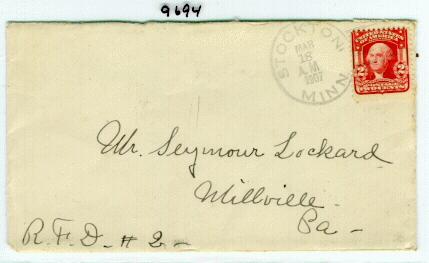 9694
STOCKTON
MAR
18
A.M
1907
MINN.
2 2
TWO CENTS
Mr. Seymour Lockard
Millville -
Pa -
R.F.D - # 2 -